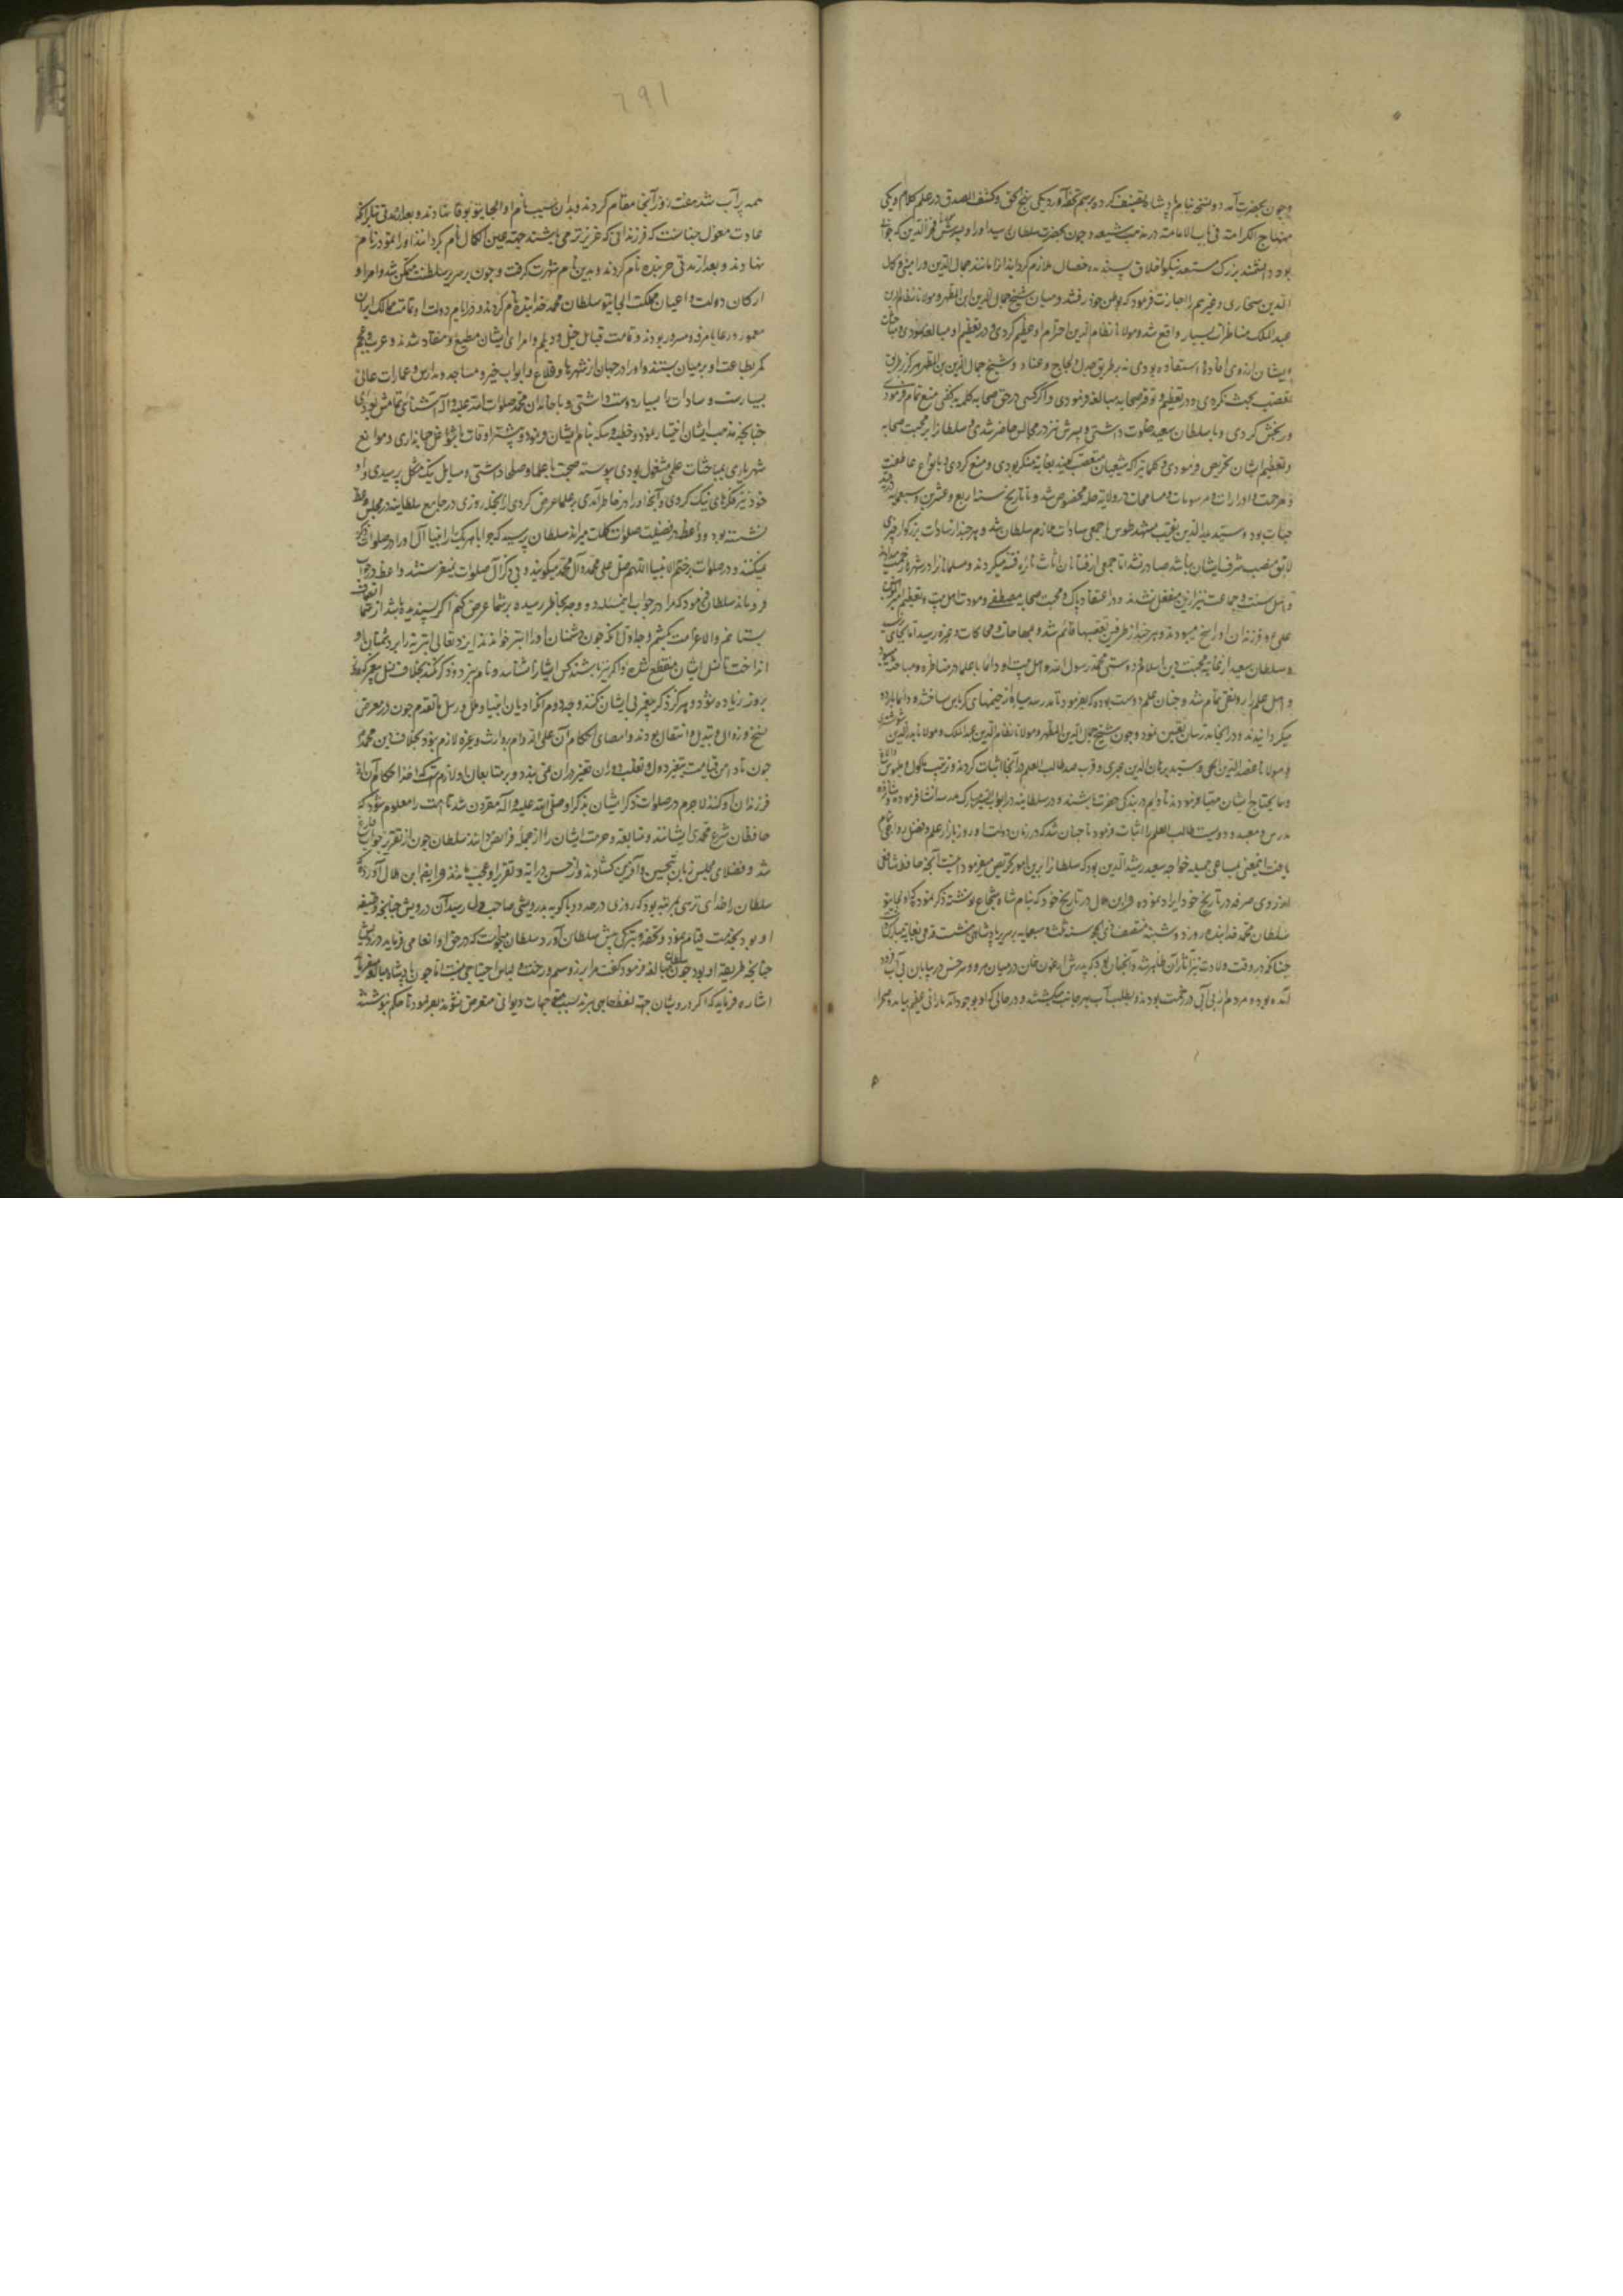 و چون بحضرت آمد دو نسخه بنام پادشاه تصنیف کرده برسم تحفه آورد یکی نهج الحق و کشف الصدق در علم کلام و یکی
منهاج الکرامة فی باب الامامة در مذهب شیعه و چون بحضرت سلطان رسید او را و پسرش مولانا فخر الدین که جوانی
بود دانشمند بزرگ مستعد نیکو اخلاق پسندیده خصال ملازم گردانید
الدین سنجاری و غیرهم را اجازت فرمود که بوطن خود رفتند و میان شیخ جمال الدین ابن المطهر و مولانا نظام الدین
عبد الملک مناظرات بسیار واقع شد و مولانا نظام الدین احترام او عظیم کردی و در تعظیم او مبالغه نمودی و مباحثات
ایشان از روی افادة و استفاده بودی نه بر طریق جدل و لجاج و عناد و شیخ جمال الدین بن المطهر هرگز بطریق
تعصب بحث نکردی و در تعظیم و توقیر صحابه مبالغه فرمودی و اگر کسی در حق صحابه کلمه بد گفتی منع تمام فرمودی
و رنجش کردی و با سلطان سعید خلوت داشتی و پسرش نیز در مجالس حاضر شدی و سلطان را بر محبت صحابه
و تعظیم ایشان تحریض فرمودی و کلماتی را که شیعیان متعصب گویند بغایة منکر بودی و منع کردی و بانواع عاطفت
و مرحمت و ادرارات و مرسومات و مسامحات در ولایة حله مخصوص شد و تا تاریخ سنه اربع و عشرین و سبعمایه در قید
حیات بود و سید بدر الدین نقیب مشهد طوس با جمعی سادات ملازم سلطان شد و هر چند از سادات بزرگوار چیزی
لایق منصب شرف ایشان باشد صادر نشد اما جمعی از فتانان اثارت نایره فتنه میکردند و مسلمانان را در شهرها
و اهل سنت و جماعت نیز ازین منفعل نشدند و در اعتقاد پاک و محبت صحابه مصطفی و مودت اهل بیت و تعظیم امیر المومنین
علی و فرزندان او راسخ میبودند و هر چند از طرفین تعصبها قائم شد و مهاجات و محاکات و غیره رسید اما بجای
و سلطان سعید از غایة محبت دین اسلام و دوستی محمد رسول الله و اهل بیت او دائما با علما در مناظره و مباحثه میبود
و اهل علم را رونقی تمام شد و چنان علم دوست بود که بفرمود تا مدرسه سیاره از خیمهای کرباس ساختند و دائما با اردو
میگردانیدند و در آنجا مدرسان تعیین نمود و چون شیخ جمال الدین المطهر و مولانا نظام الدین عبد الملک و مولانا بدر الدین شوشتری
و مولانا عضد الدین ایجی و سید برهان الدین عبری و قرب صد طالب العلم در آنجا اثبات کردند و ترتیب ماکول و ملبوس و الاغ
و ما یحتاج ایشان مهیا فرمودند تا دایم در بندگی حضرت باشند و در سلطانیه در ابواب البر مبارک مدرسه انشا فرمود
مدرس و معید و دویست طالب العلم را اثبات فرمود تا چنان شد که در زمان دولت او روز بازار علم و فضل رواجی تمام
یافت اینمعنی بمساعی جمیله خواجه سعید رشید الدین بود که سلطان را برین امور تحریص میفرمود
از روی صرفه در تاریخ خود ایراد نموده و این حال در تاریخ خود که بنام شاه شجاع نوشته ذکر نموده که اولجایتو
سلطان محمد خدابنده روز دوشنبه منتصف ذی الحجه سنه ثلث و سبعمایه بر سریر پادشاهی نشست قدمی بغایة مبارک داشت
چنانکه در وقت ولادت نیز آثار آن ظاهر شد و آنچنان بود که پدرش ارغون خان در میان مرو و سرخس در بیابان بی آب فرود
آمده بود و مردم از بی آبی در زحمت بودند و بطلب آب بهر جانب میگشتند و در حالی که او بوجود آمد بارانی عظیم بیامد و صحرا
۶۹۱
همه پر آب شد هفت روز آنجا مقام کردند و بدان سبب نام او الجایتو بوقا نهادند و بعد از مدتی
عادت مغول چنانست که فرزندانی که عزیزتر می باشند جهة عین الکمال نام گردانند او را تمودر نام
نهادند و بعد از مدتی خربنده نام کردند و بدین نام شهرت گرفت و چون بر سریر سلطنت متمکن شد و امرا و
ارکان دولت و اعیان مملکت الجایتو سلطان محمد خدابنده نام کردند و در ایام دولت او تمامت ممالک ایران
معمور و رعایا مرفه و مسرور بودند و تمامت قبایل جیل و دیلم و امرای ایشان مطیع و منقاد شدند و عرب و عجم
کمر بطاعت او بر میان بستند و او را در جهان از شهرها و قلاع و ابواب خیر و مساجد و مدارس و عمارات عالی
بسیارست و سادات را بسیار دوست داشتی و با خاندان محمد صلوات الله علیه و آله آشنائی تمامش بودی
چنانچه مذهب ایشان اختیار نمود و خطبه و سکه بنام ایشان فرمود و بیشتر اوقات با شواغل جهانداری و موانع
شهریاری بمباحثات علمی مشغول بودی پیوسته صحبت با علما و صلحا داشتی و مسایل نیک مشکل پرسیدی و او
خود نیز فکرهای نیک کردی و آنچه او را در خاطر آمدی بر علما عرض کردی از آنجمله روزی در جامع سلطانیه در مجلس وعظ
نشسته بود و واعظ در فضیلت صلوات کلمات میراند سلطان پرسید که چرا با هر یک از انبیا آل او را در صلوات ذکر
نمیکنند و در صلوات بر ختم الانبیا اللهم صل علی محمد و آل محمد میگویند و بی ذکر آل صلوات نمیفرستند واعظ در جواب
فرو ماند سلطان فرمود که مرا در جواب این مسئله دو وجه بخاطر رسیده بر شما عرض کنم اگر پسندیده باشد از شما انصاف
بستانم و الا غرامت بکشم وجه اول آنکه چون دشمنان او را ابتر خواندند ایزد تعالی ابتریة را بر دشمنان او
انداخت تا نسل ایشان منقطع شد و اگر نیز باشند کس ایشان را نشناسد و نام نبرد و ذکر نکند بخلاف نسل پیغمبر که روز
بروز زیاده شود و هرگز ذکر پیغمبر بی ایشان نکنند وجه دوم آنکه ادیان انبیا و ملل و رسل ما تقدم چون در معرض
نسخ و زوال و تبدیل و انتقال بودند و امضای احکام آن علی الدوام بر وارث و غیره لازم نبود بخلاف دین محمدی
چون تا دامن قیامت بتغیر دول و تقلب دوران تغیر در آن نمی پذیرد و بر متابعان او لازمست که اخذ احکام آن از
فرزندان او کنند لاجرم در صلوات ذکر ایشان بذکر او صلی الله علیه و آله مقرون شد تا امت را معلوم شود که
حافظان شرع محمدی ایشانند و متابعة و حرمت ایشان را از جمله فرائض دانند سلطان چون از تقریر جواب فارغ
شد و فضلای مجلس زبان بتحسین و آفرین گشادند و از حسن درایة و تقریر او عجب ماندند و ایضا این حال آورده که
سلطان را خدای ترسی بمرتبه بود که روزی در حدود باکویه بدرویشی صاحب دل رسید آن درویش چنانچه وظیفه
او بود بخدمت قیام نمود و تحفه و تبرکی پیش سلطان آورد سلطان میخواست که در حق او انعامی فرماید درویش
چنانچه طریقه او بود چون سلطان مبالغه فرمود گفت مرا بزر و سیم و رخت و لباس احتیاجی نیست اما چون پادشاه مبالغه میفرماید
اشاره فرماید که اگر درویشان جهة لقمه حاجی برند بسبب جهات دیوانی متعرض نشوند بفرمود تا حکم نوشتند